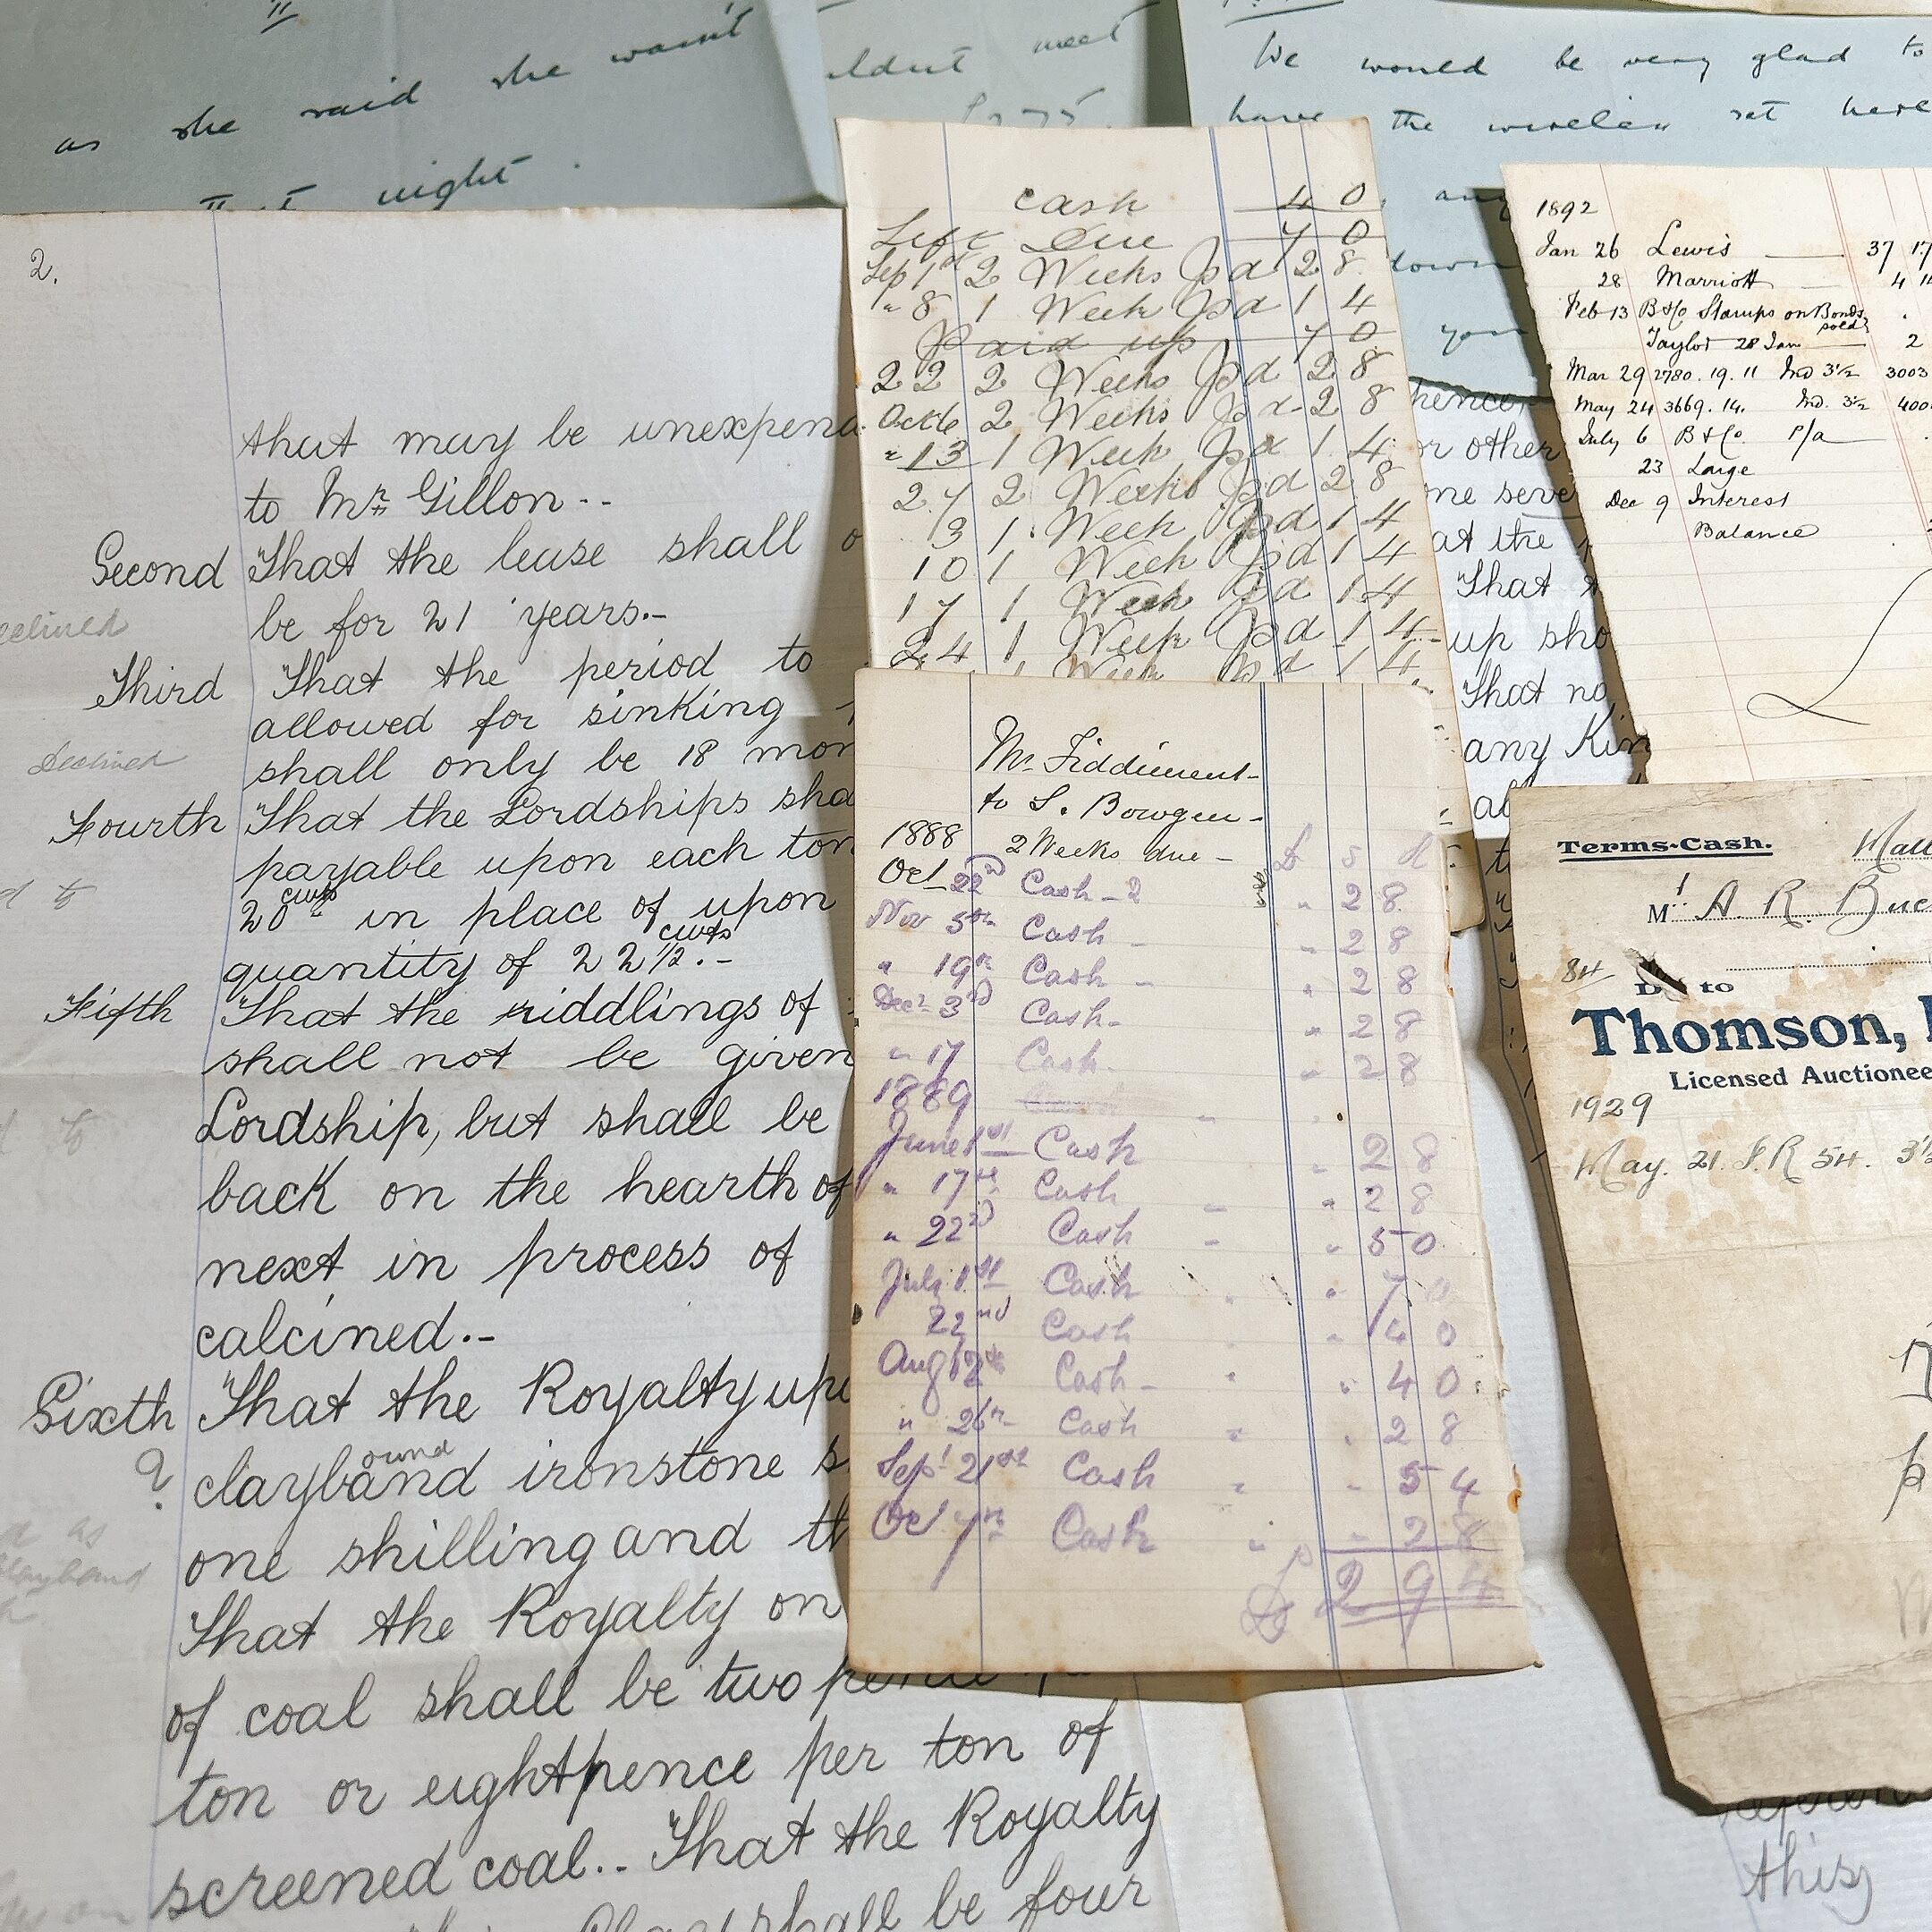 as she said she wasn't
That night.
meet
We would be very glad to
have the wireless set here
any
down
you
2.
that may be unexpen
to Mr. Gillon..
Second That the lease shall
be for 21 years.-
Declined
Third That the period to
allowed for sinking
shall only be 18 mon
Declined
Fourth That the Lordships sha
payable upon each ton
20 cwts in place of upon
quantity of 22½ cwts.-
Fifth That the riddlings of
shall not be given
Lordship, but shall be
back on the hearth of
next in process of
calcined.-
Sixth That the Royalty upo
? claybând ironstone s
ound
one shilling and th
That the Royalty on
of coal shall be two pence
ton or eightpence per ton of
screened coal.. That the Royalty
Clay shall be four
Cash 4 0
Left Due 7 0
Sep 1st 2 Weeks Pd 2 8
" 8 1 Week Pd 1 4
Paid up 7 0
22 2 Weeks Pd 2 8
Oct 6 2 Weeks Pd 2 8
" 13 1 Week Pd 1 4
27 2 Weeks Pd 2 8
3 1 Week Pd 1 4
10 1 Week Pd 1 4
17 1 Week Pd 1 4
24 1 Week Pd 1 4
1 Week Pd 1 4
Mr. Fiddiment
to S. Bowgen
1888 2 Weeks due - £ s d
Oct 22nd Cash - 2 " 2 8
Nov 5th Cash - " 2 8
" 19th Cash - " 2 8
Decr 3rd Cash - " 2 8
" 17 Cash - " 2 8
1889
June 1st Cash " 2 8
" 17th Cash " 2 8
" 22nd Cash " 5 0
July 1st Cash " 7 0
22nd Cash " 4 0
Aug 12th Cash - " 4 0
" 26th Cash " 2 8
Sept 21st Cash " 5 4
Oct 7th Cash " 2 8
£ 2 9 4
hence
or other
one seve
at the
That
up sho
That no
any Kin
1892
Jan 26 Lewis 37 17
28 Marriott 4
Feb 13 B&Co Stamps on Bonds sold
Taylor 28 Jan 2
Mar 29 2780.19.11 Ind 3½ 3003
May 24 3669.14. Ind. 3½ 400
July 6 B&Co. P/a
23 Large
Dec 9 Interest
Balance
Terms-Cash.
Mr. A. R. Buc
84
Dr to
Thomson,
Licensed Auctionee
1929
May. 21. S.R 54. 3½
this